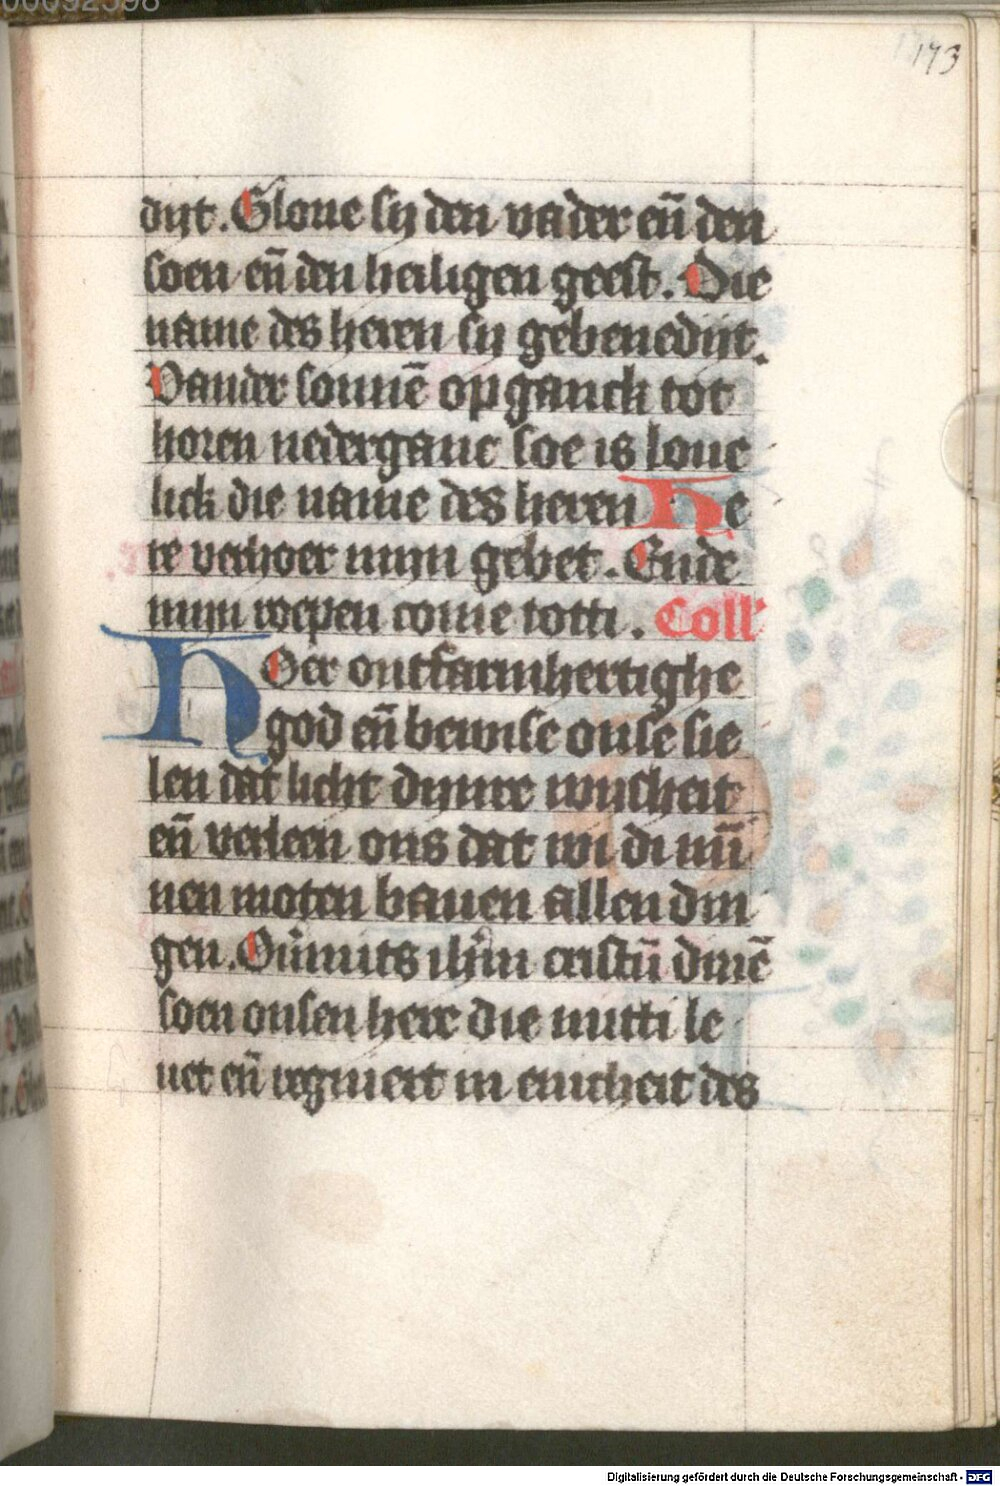 00092598
173
dijt. Gloue sij den vader eñ den
soen eñ den heiligen geest. Die
name des heren sij gebenedijt.
Vander sonnē opganck tot
horen nederganc soe is loue
lick die name des heren He
re verhoer mijn gebet. Ende
mijn roepen come totti. Coll'
HEer ontfarmhertighe
god eñ bewise onse sie
len dat licht dijnre wijsheit
eñ verleen ons dat wi di mī
nen moten bauen allen din
gen. Ouermits ihm cristū dinē
soen onsen here die mitti le
uet eñ regniert in enicheit des
Digitalisierung gefördert durch die Deutsche Forschungsgemeinschaft - DFG